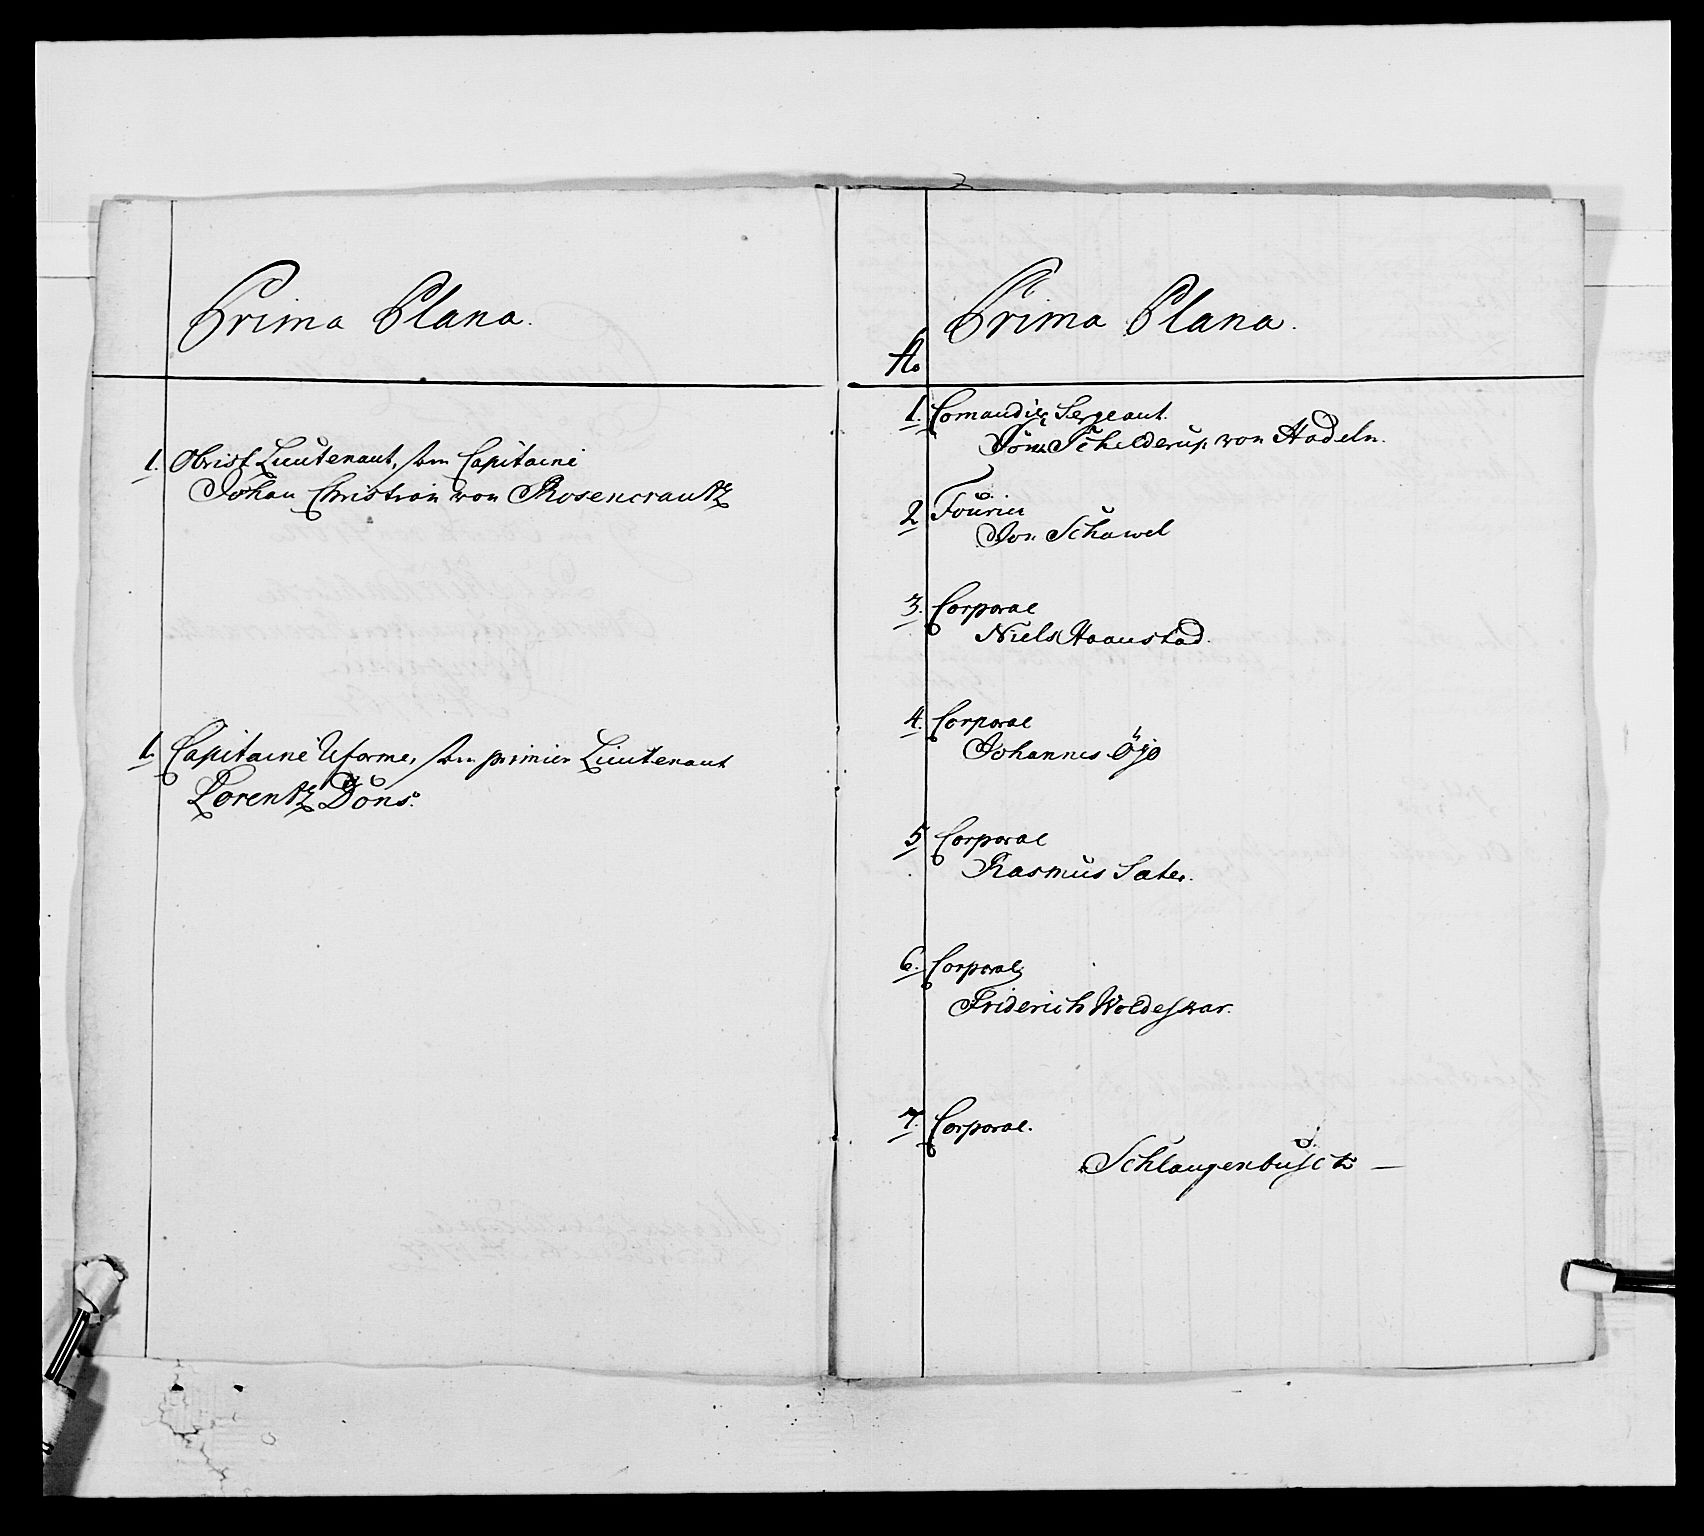 Prima Plana.
1. Obrist Lieutenant, som Capitaine
Johan Christian von Rosencrantz
1. Capitaine Reforme, som primier Lieutenant
Lorentz Döns.
Prima Plana.
No
1. Comandir Sergeant.
Schilderup von Hadeln.
2 Fourier
Von Schawel
3. Corporal
Niels Haaustad.
4. Corporal
Johannes Öjo
5 Corporal
Rasmus Sater.
6. Corporal
Friderich Woldeskar.
7. Corporal.
Schlangenbusch —